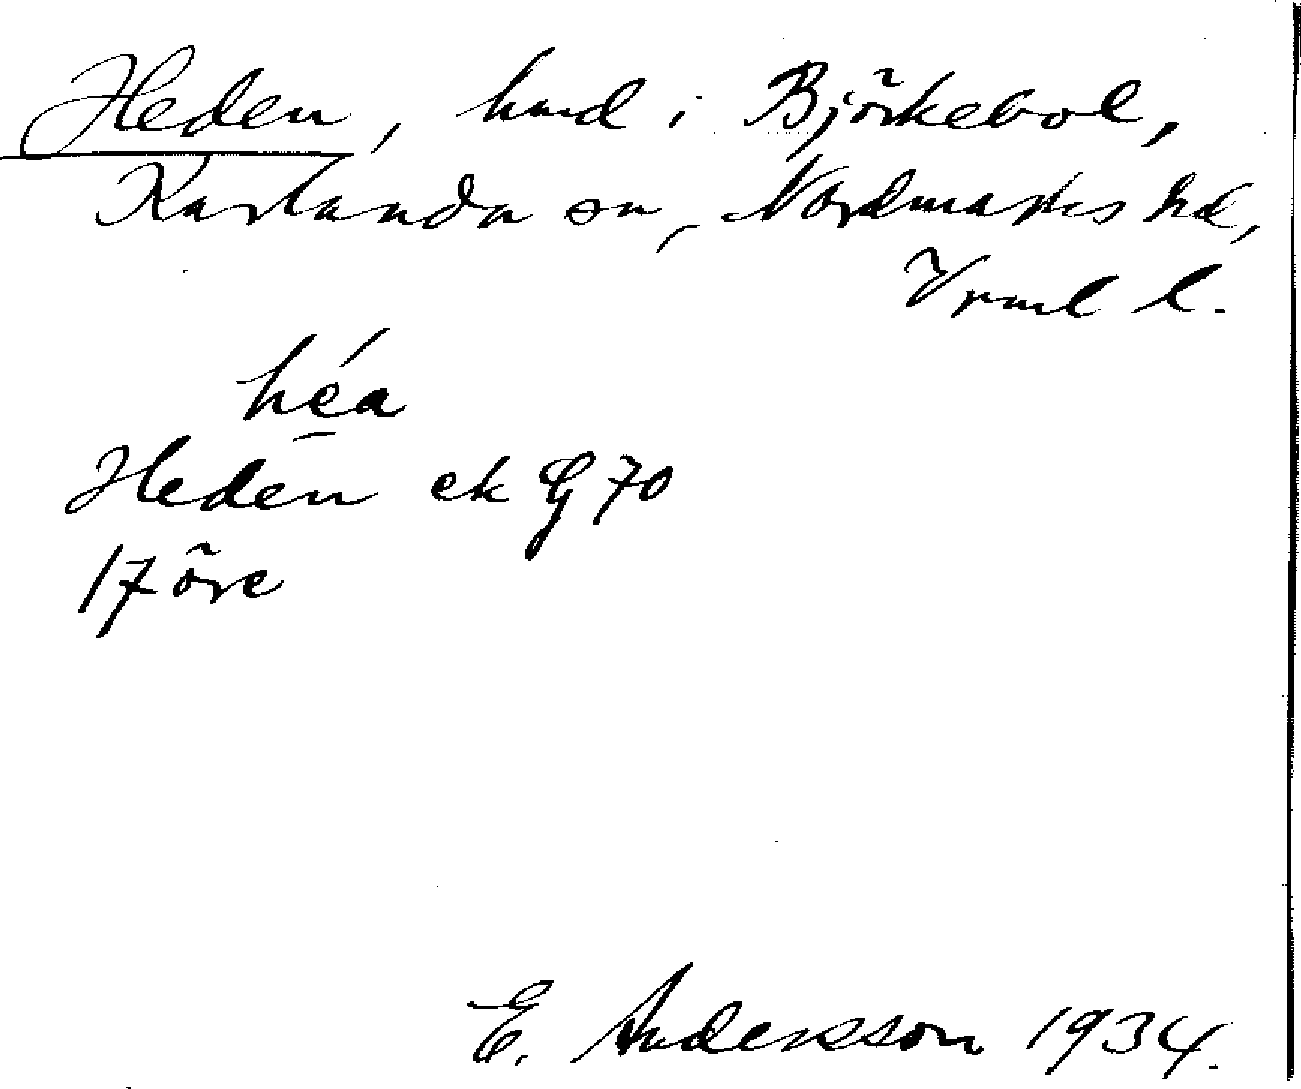 Heden, hmd i Björkebol,
Karlanda sn, Nordmarks hd,
Vrml l.
héa
Heden ek G 70
17 öre
E. Andersson 1934.